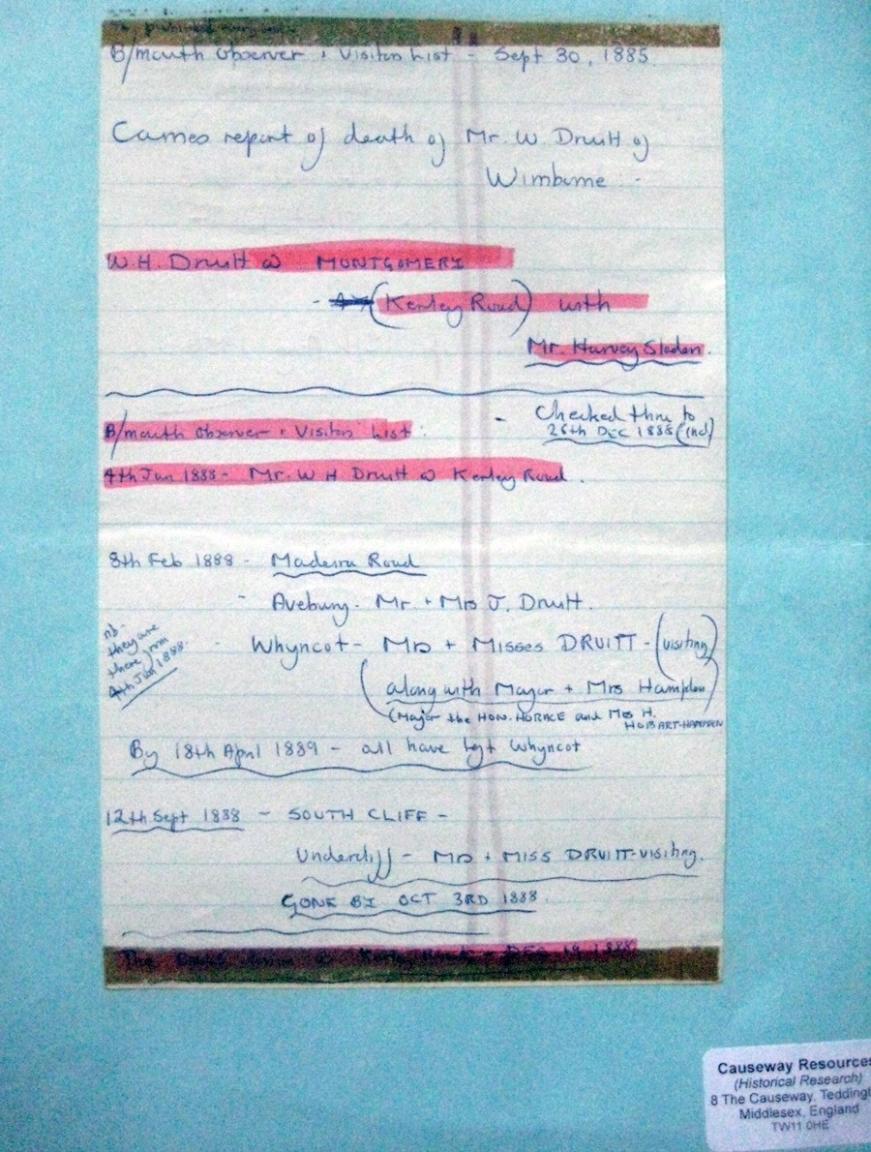 B/mouth Observer + Visitors List - Sept 30, 1885
Carries report of death of Mr. W. Druitt of
Wimborne -
W.H. Druitt @ MONTGOMERY
- (Kerley Road) with
Mr. Harvey Sladen.
B/mouth Observer + Visitors List:
- Checked thru to
26th DEC 1888 (incl)
4th Jan 1888 - Mr. W H Druitt @ Kerley Road.
8th Feb 1888 - Madeira Road
- Avebury - Mr. + Mrs J. Druitt.
nb -
they are
there from
4th Jan 1888.
- Whyncot - Mrs + Misses DRUITT - (visiting)
(along with Major + Mrs Hampden)
(Major the HON. HORACE and Mrs H.
HOBART-HAMPDEN
By 18th April 1889 - all have left Whyncot
12th Sept 1888 - SOUTH CLIFF -
Undercliff - Mrs + MISS DRUITT - visiting.
GONE BY OCT 3RD 1888.
The Kerley Road - DEC 19 1888
Causeway Resources
(Historical Research)
8 The Causeway, Teddingt
Middlesex, England
TW11 0HE